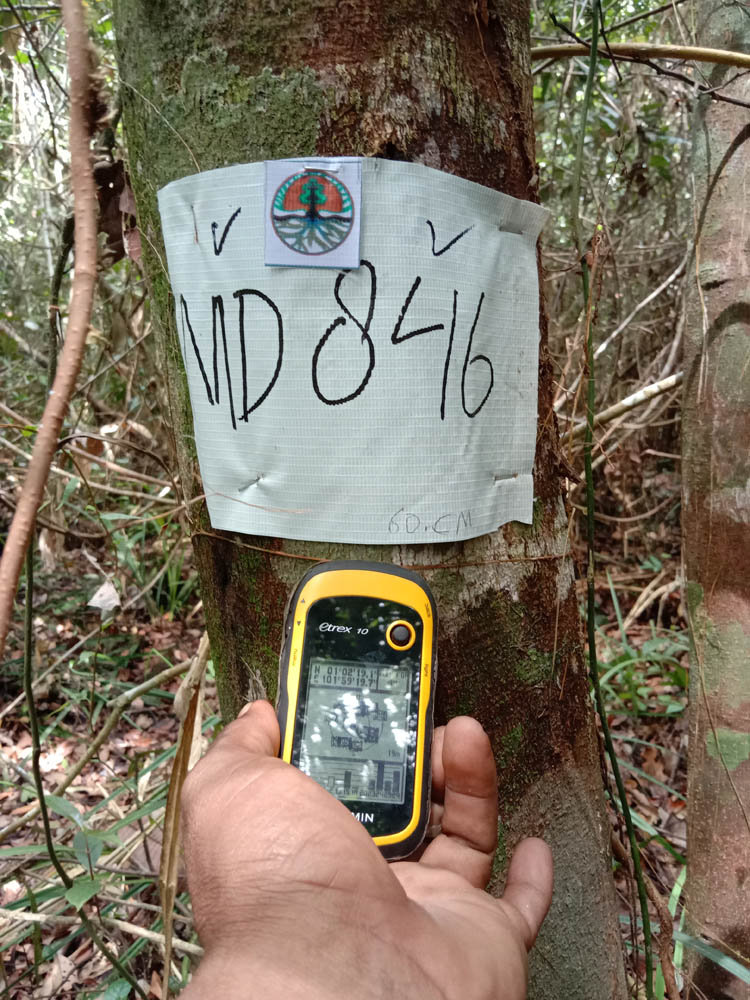 MD 846
60.CM
etrex 10
N 01°02'19.1"
E 101°59'19.7"